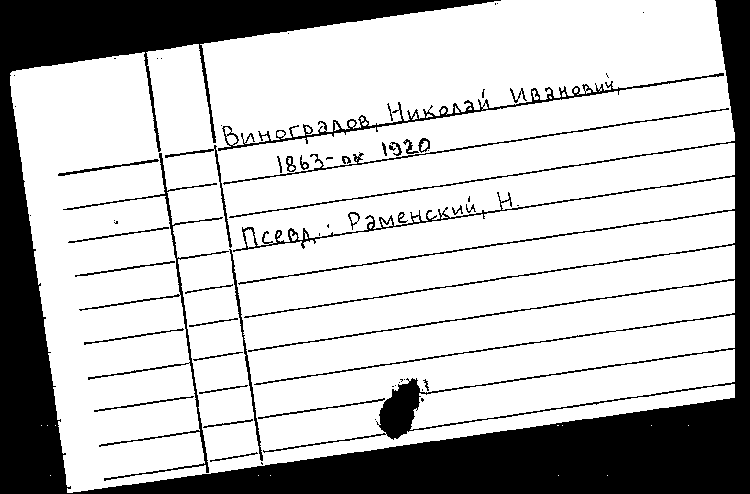 Виноградов, Николай Иванович,
1863-ок 1920
Псевд.: Раменский, Н.